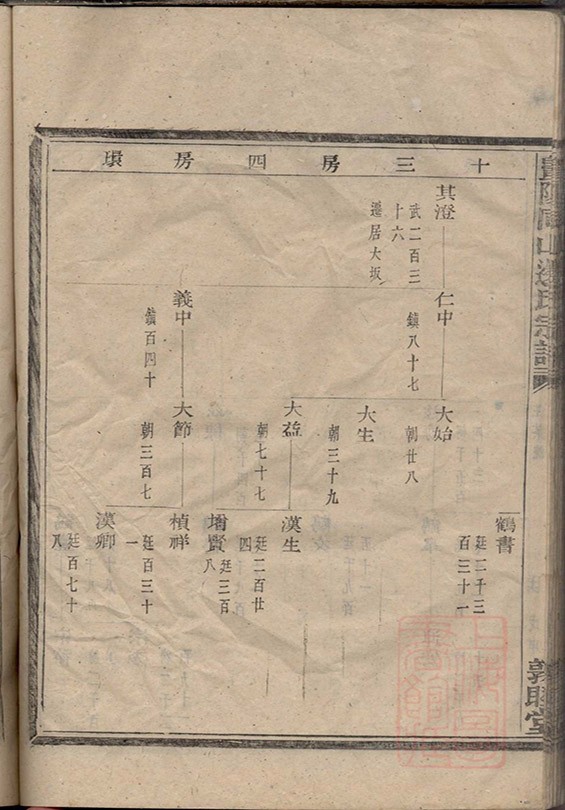 十三房四房填
其澄
武二百三
十六
遷居大坂
仁中
鎮八十七
義中
鎮百四十
大始
朝廿八
大生
朝三十九
大益
朝七十七
大節
朝三百七
鶴書
廷二千三
百三十一
漢生
廷二百廿
四
增賢
廷三百
八
楨祥
廷百三十
一
漢卿
廷百七十
八
敦睦堂